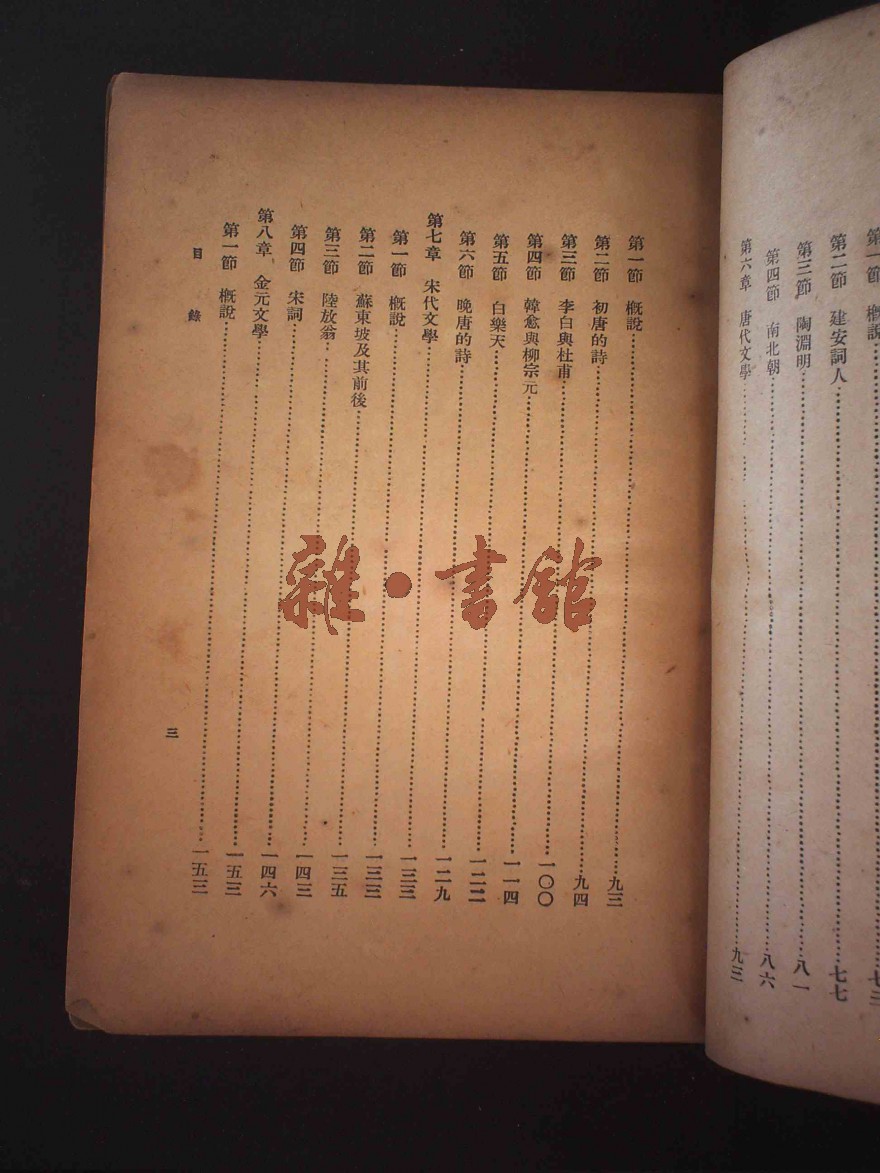 第一節 概說……七三
第二節 建安詞人……七七
第三節 陶淵明……八一
第四節 南北朝……八六
第六章 唐代文學……九三
第一節 概說……九三
第二節 初唐的詩……九四
第三節 李白與杜甫……一〇〇
第四節 韓愈與柳宗元……一一四
第五節 白樂天……一二二
第六節 晚唐的詩……一二九
第七章 宋代文學……一三三
第一節 概說……一三三
第二節 蘇東坡及其前後……一三五
第三節 陸放翁……一四三
第四節 宋詞……一四六
第八章 金元文學……一五三
第一節 概說……一五三
目錄 三
雜·書館